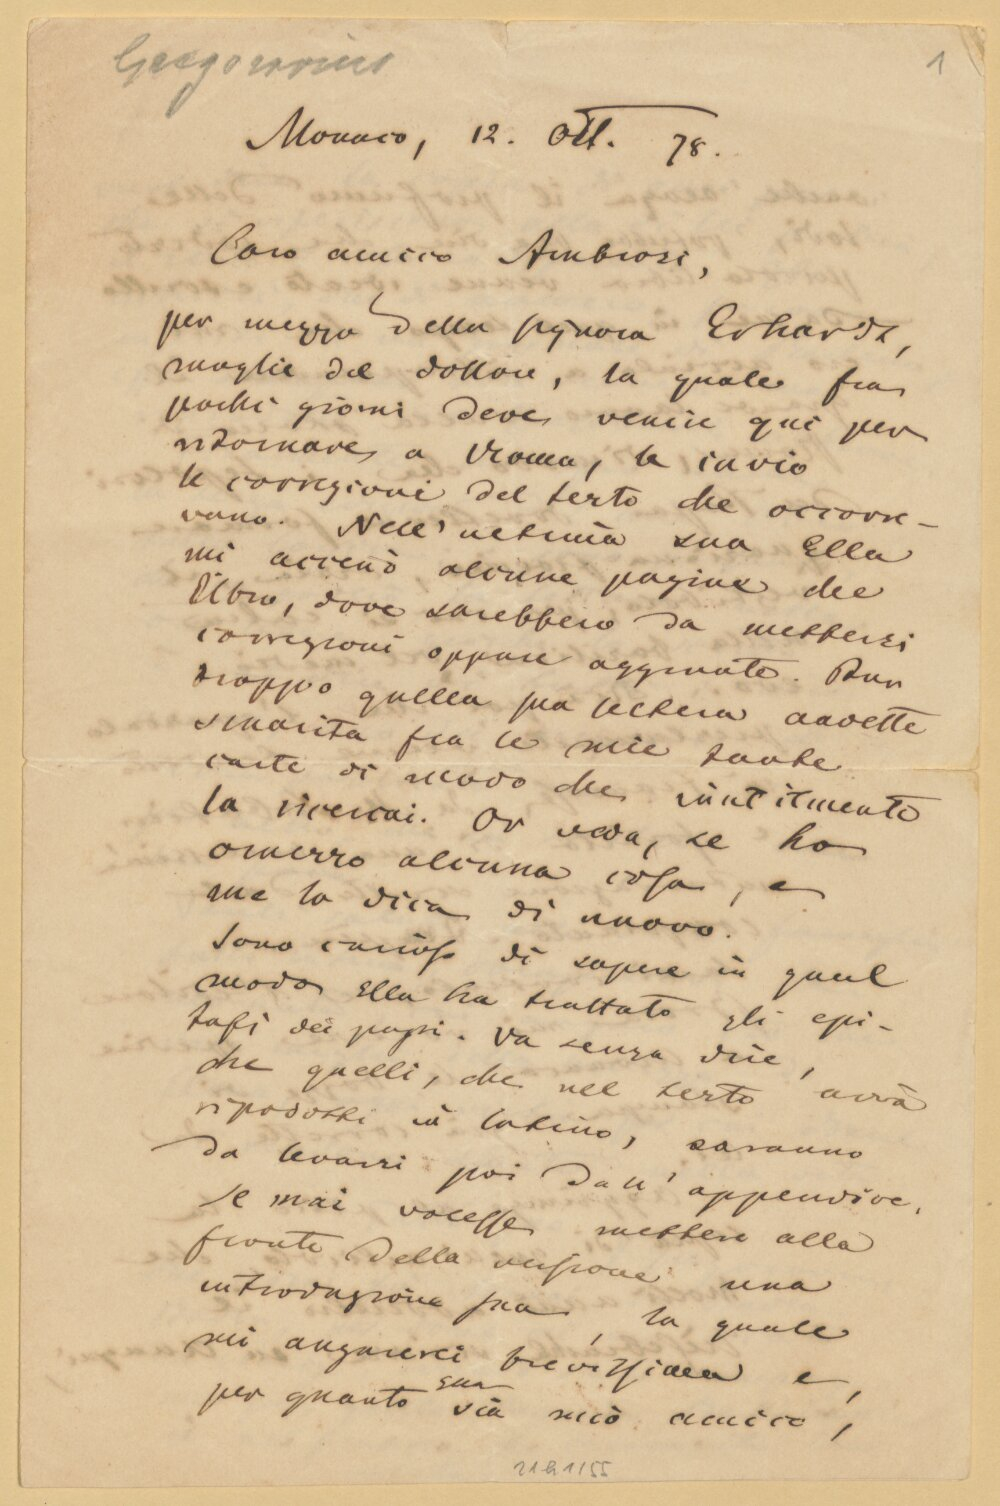 Gregorovius
1
Monaco, 12. Ott. 78.
Caro amico Ambrosi,
per mezzo della signora Erhardt,
moglie del dottore, la quale fra
pochi giorni deve venire qui per
ritornare a Roma, le invio
le correzioni del testo che occorre-
vano. Nell' ultima sua Ella
mi accennò alcune pagine del
libro, dove sarebbero da mettersi
correzioni oppure aggiunte. Pur
troppo quella sua lettera andette
smarita fra le mie tante
carte di modo che inutilmente
la ricercai. Or veda, se ho
omesso alcuna cosa, e
me la dica di nuovo.
Sono curioso di sapere in qual
modo Ella ha trattato gli epi-
tafi dei papi. Va senza dire,
che quelli, che nel testo avrà
riprodotti in latino, saranno
da levarsi poi dall' appendice.
Se mai volesse mettere alla
fronte della versione una
introduzione sua, la quale
mi augurerei brevissima e,
per quanto Ella sia mio amico,
21b1/55